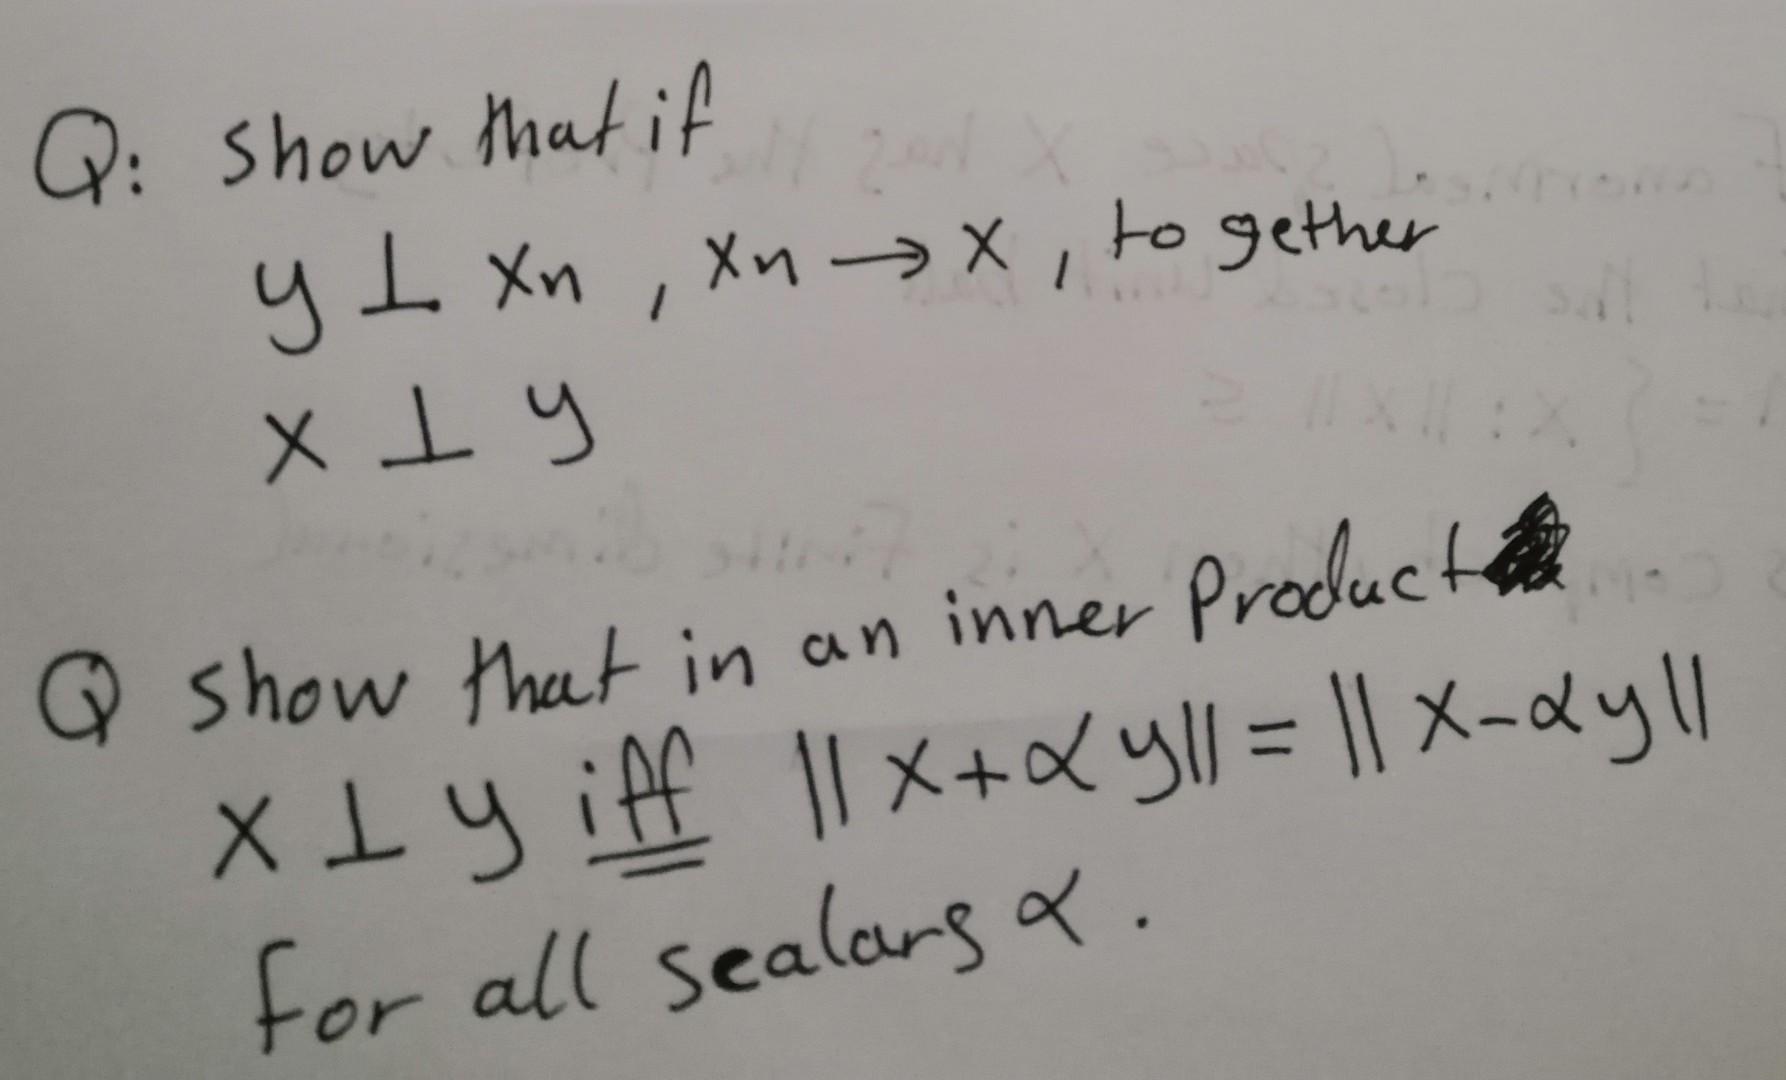 Q: show that if
y ⊥ xn, xn → x, together
x ⊥ y
Q show that in an inner product
x ⊥ y iff ||x+αy|| = ||x-αy||
for all scalars α.